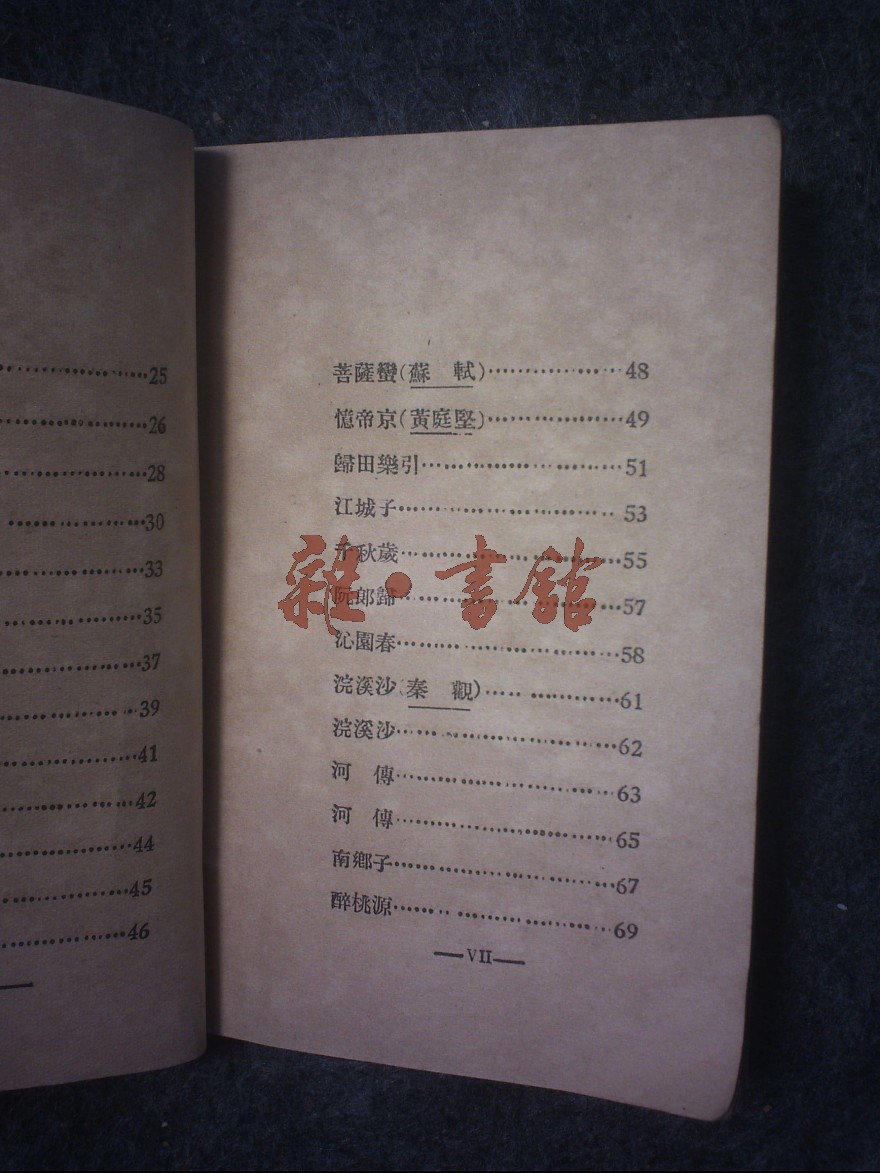 25
26
28
30
33
35
37
39
41
42
44
45
46
菩薩蠻(蘇　軾)……………………48
憶帝京(黃庭堅)……………………49
歸田樂引……………………51
江城子……………………53
千秋歲……………………55
阮郎歸……………………57
沁園春……………………58
浣溪沙(秦　觀)……………………61
浣溪沙……………………62
河　傳……………………63
河　傳……………………65
南鄉子……………………67
醉桃源……………………69
—VII—
雜·書館